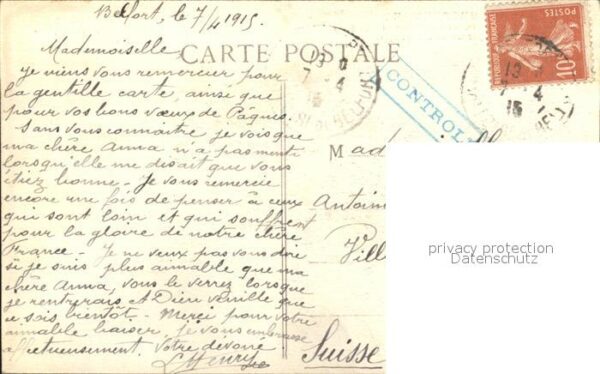 Belfort, le 7/4 1915
CARTE POSTALE
Mademoiselle,
Je viens vous remercier pour
la gentille carte, ainsi que
pour vos bons vœux de Pâques.
Sans vous connaître je vois que
ma chère Anna n'a pas menti
lorsqu'elle me disait que vous
étiez bonne. Je vous remercie
encore une fois de penser à ceux
qui sont loin et qui souffrent
pour la gloire de notre chère
France. Je ne veux pas vous dire
si je suis plus aimable que ma
chère Anna, vous le verrez lorsque
je rentrerais et Dieu veuille que
ce sois bientôt. Merci pour votre
aimable baiser, je vous embrasse
affectueusement. Votre dévoué
L Henry
CONTROL
13
7-4
15
BELFORT
REPUBLIQUE FRANÇAISE
POSTES
10c
13
4
15
Mad
Antoin
Vill
Suisse
privacy protection
Datenschutz